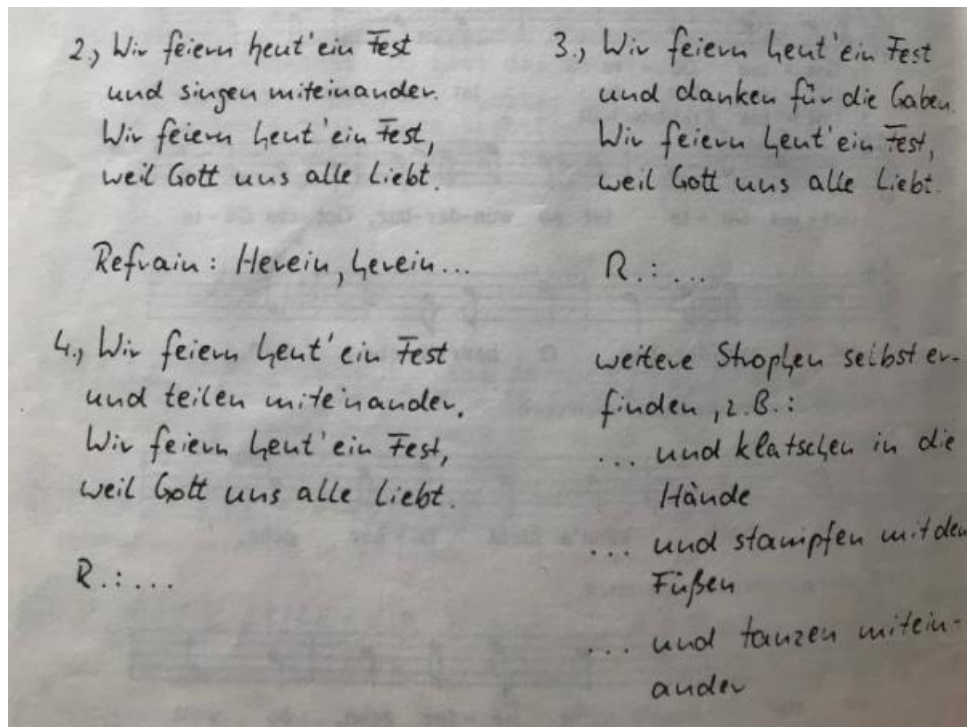 2., Wir feiern heut' ein Fest
und singen miteinander.
Wir feiern heut' ein Fest,
weil Gott uns alle liebt.
Refrain: Herein, herein...
3., Wir feiern heut' ein Fest
und danken für die Gaben.
Wir feiern heut' ein Fest,
weil Gott uns alle liebt.
R.: ...
4., Wir feiern heut' ein Fest
und teilen miteinander.
Wir feiern heut' ein Fest,
weil Gott uns alle liebt.
R.: ...
weitere Strophen selbst er-
finden, z.B.:
... und klatschen in die
Hände
... und stampfen mit den
Füßen
... und tanzen mitein-
ander